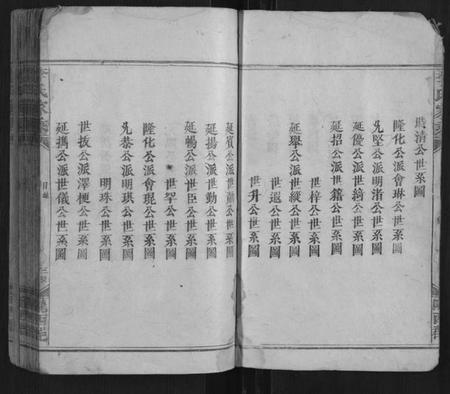 時清公世系圖
隆化公派會琳公世系圖
先堅公派明淯公世系圖
延優公派世綺公世系圖
延招公派世籍公世系圖
世梓公世系圖
延舉公派世縱公世系圖
世遐公世系圖
世升公世系圖
延賓公派世公世系圖
延揚公派世勳公世系圖
延暢公派世臣公世系圖
世罕公世系圖
隆化公派會琨公世系圖
先恭公派明琪公世系圖
明珠公世系圖
世拔公派澤梗公世系圖
延攜公派世儀公世系圖
目
氏家